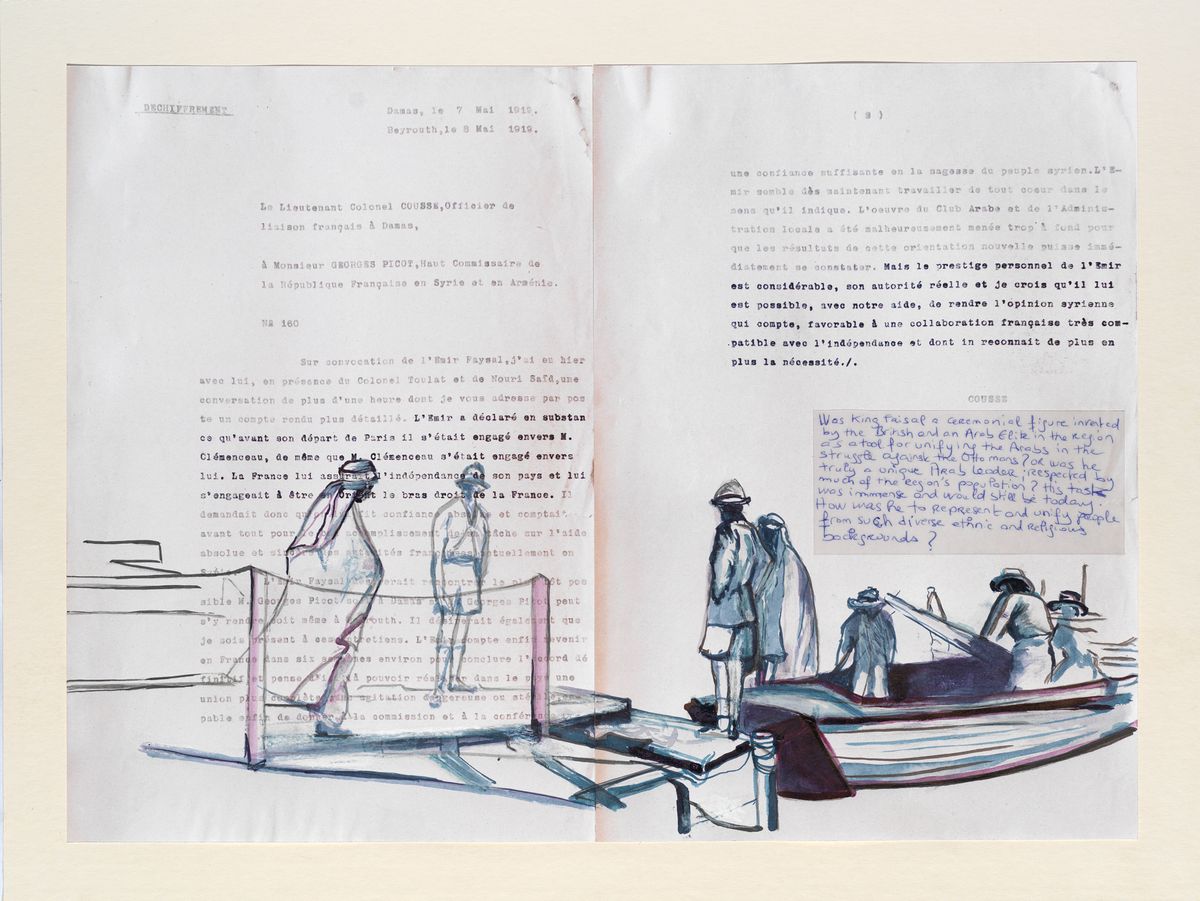 DECHIFFREMENT
Damas, le 7 Mai 1919.
Beyrouth,le 8 Mai 1919.
Le Lieutenant Colonel COUSSE,Officier de
liaison français à Damas,
à Monsieur GEORGES PICOT,Haut Commissaire de
la République Française en Syrie et en Arménie.
N° 160
Sur convocation de l'Emir Faysal,j'ai eu hier
avec lui, en présence du Colonel Toulat et de Nouri Saïd,une
conversation de plus d'une heure dont je vous adresse par pos
te un compte rendu plus détaillé. L'Emir a déclaré en substan
ce qu'avant son départ de Paris il s'était engagé envers M.
Clémenceau, de même que M. Clémenceau s'était engagé envers
lui. La France lui assurait l'indépendance de son pays et lui
s'engageait à être en Orient le bras droit de la France. Il
demandait donc qu'on fit confiance absolue et comptait
avant tout pour l'accomplissement de sa tâche sur l'aide
absolue et des autorités françaises actuellement en
L'Emir Faysal désirerait rencontrer le plus tôt pos
sible M. Georges Picot soit à Damas si M. Georges Picot peut
s'y rendre soit même à Beyrouth. Il désirerait également que
je sois présent à ces entretiens. L'Emir compte enfin revenir
en France dans six semaines environ pour conclure l'accord dé
finitif et pense d'ici là pouvoir réaliser dans le pays une
union plus complète sans agitation dangereuse ou stérile,
pable enfin de donner à la commission et à la conférence
( 2 )
une confiance suffisante en la sagesse du peuple syrien.L'E-
mir semble dès maintenant travailler de tout coeur dans le
sens qu'il indique. L'oeuvre du Club Arabe et de l'Adminis-
tration locale a été malheureusement menée trop à fond pour
que les résultats de cette orientation nouvelle puisse immé-
diatement se constater. Mais le prestige personnel de l'Emir
est considérable, son autorité réelle et je crois qu'il lui
est possible, avec notre aide, de rendre l'opinion syrienne
qui compte, favorable à une collaboration française très com-
patible avec l'indépendance et dont in reconnait de plus en
plus la nécessité./.
COUSSE
Was King Faisal a ceremonial figure invented
by the British and an Arab Elite in the region
as a tool for unifying the Arabs in the
struggle against the Ottomans? or was he
truly a unique Arab leader respected by
much of the region's population? His task
was immense and would still be today.
How was he to represent and unify people
from such diverse ethnic and religious
backgrounds?